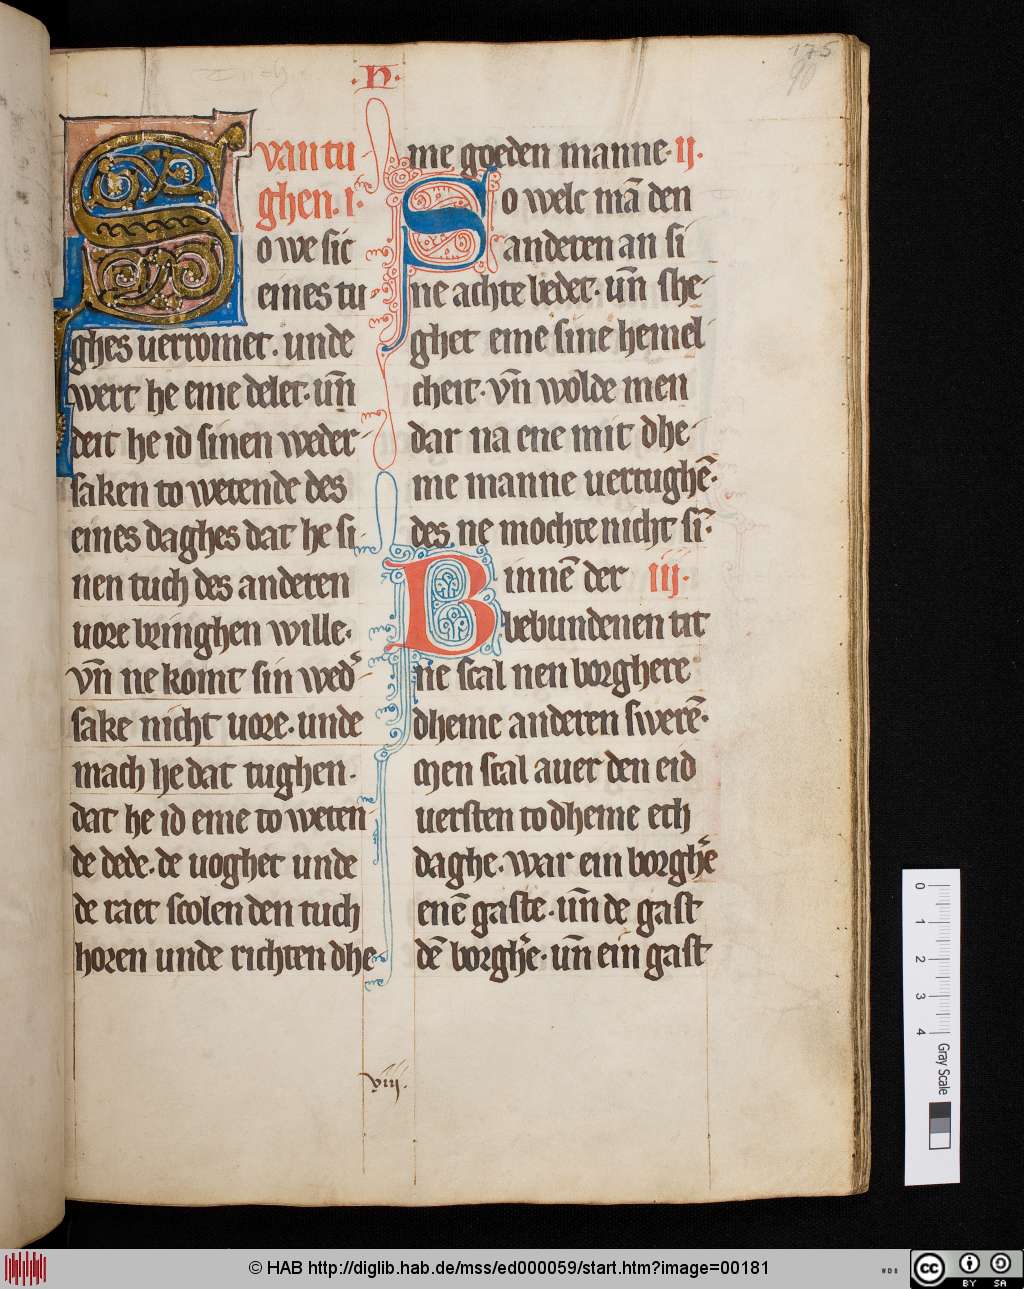 ·N·
175
90
van tu
ghen. i.
So we sic
eines tu
ghes uerromet. unde
wert he eme delet. un̄
deit he id sinen weder
saken to wetende des
eines daghes dat he si
nen tuch des anderen
uore bringhen wille.
vn̄ ne komt sin wed᷑
sake nicht uore. unde
mach he dat tughen.
dat he id eme to weten
de dede. de uoghet unde
de raet scolen den tuch
horen unde richten dhe
me goeden manne. ij.
So welc mā den
anderen an si
ne achte bedet. un̄ she
ghet eme sine hemel
cheit. vn̄ wolde men
dar na ene mit dhe
me manne uertughē.
des ne mochte nicht sī.
Binnē der iij.
bebundenen tit
ne scal nen borghere
dheme anderen swerē.
Men scal auer den eid
uersten to dheme ech
daghe. war ein borgh᷑e
enē gaste. un̄ de gast
dē borgh᷑e. un̄ ein gast
viij.
0 1 2 3 4
Gray Scale
© HAB http://diglib.hab.de/mss/ed000059/start.htm?image=00181
WDB
cc BY SA